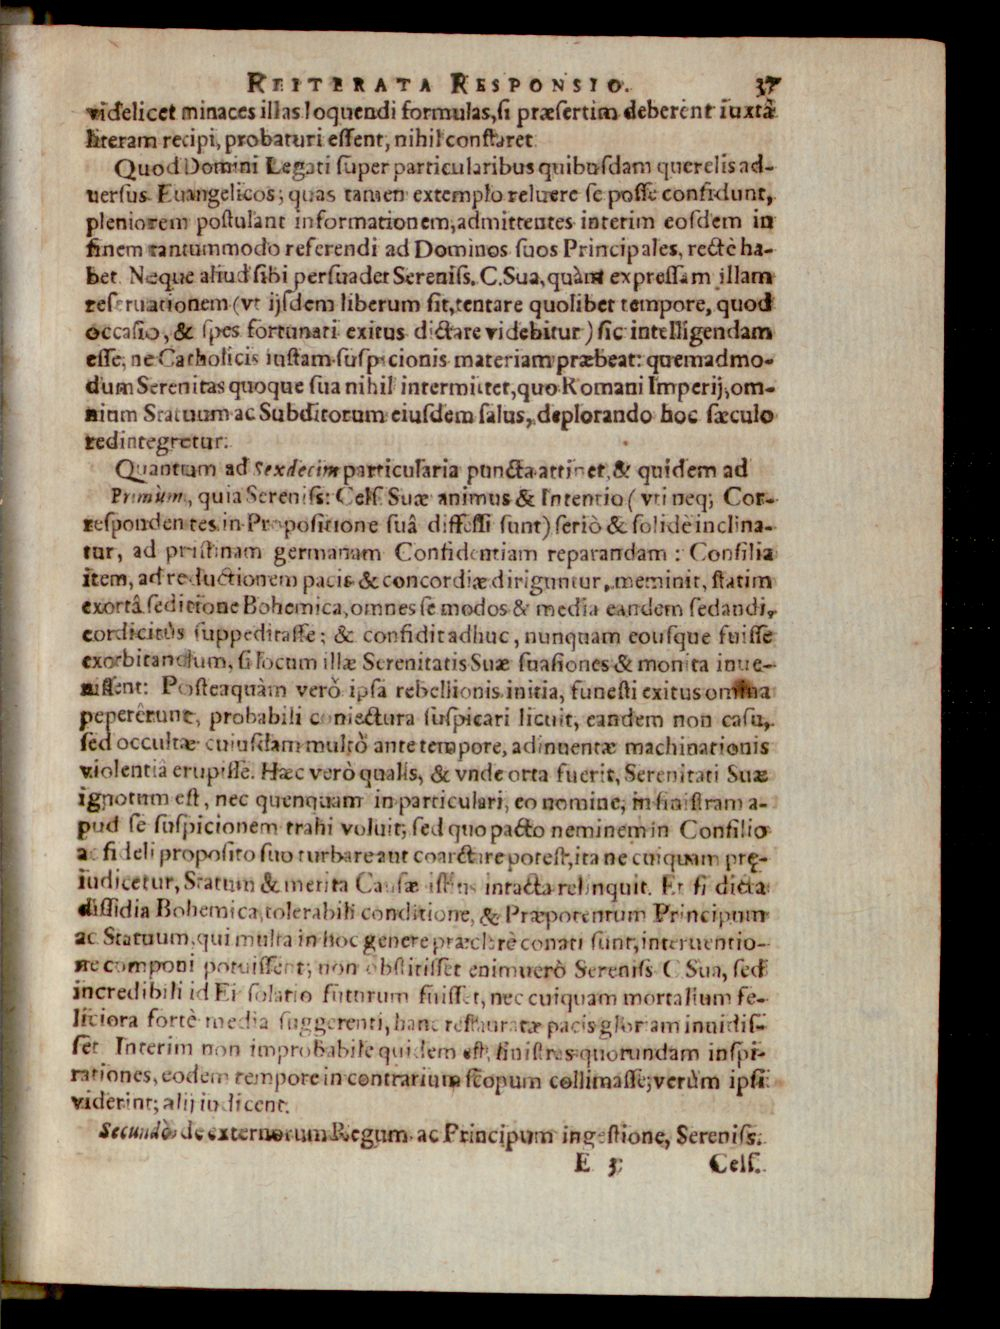 REITERATA RESPONSIO. 37
videlicet minaces illas loquendi formulas, si præsertim deberent iuxtà
literam recipi, probaturi essent, nihil constaret.
Quod Domini Legati super particularibus quibusdam querelis ad-
uersus Euangelicos; quas tamen extemplo reluere se posse confidunt,
pleniorem postulant informationem, admittentes interim eosdem in
finem tantummodo referendi ad Dominos suos Principales, rectè ha-
bet. Neque aliud sibi persuadet Sereniss. C. Sua, quàm expressam illam
reseruationem (vt ijsdem liberum sit, tentare quolibet tempore, quod
occasio, & spes fortunati exitus dictare videbitur) sic intelligendam
esse, ne Catholicis iustam suspicionis materiam præbeat: quemadmo-
dum Serenitas quoque sua nihil intermittet, quo Romani Imperij, om-
nium Statuum ac Subditorum eiusdem salus, deplorando hoc sæculo
redintegretur.
Quantum ad Sexdecim particularia puncta attinet, & quidem ad
Primùm, quia Sereniss: Cels. Suæ animus & Intentio (vti neq; Cor-
respondentes in Propositione suâ diffessi sunt) seriò & solidè inclina-
tur, ad pristinam germanam Confidentiam reparandam: Consilia
item, ad reductionem pacis & concordiæ diriguntur, meminit, statim
exortâ seditione Bohemica, omnes se modos & media eandem sedandi,
cordicitùs suppeditasse; & confidit adhuc, nunquam eousque fuisse
exorbitandum, si locum illæ Serenitatis Suæ suasiones & monita inue-
nissent: Posteaquàm verò ipsa rebellionis initia, funesti exitus omina
pepererunt, probabili coniectura suspicari licuit, eandem non casu,
sed occultæ cuiusdam multò ante tempore, adinuentæ machinationis
violentiâ erupisse. Hæc verò qualis, & vnde orta fuerit, Serenitati Suæ
ignotum est, nec quenquam in particulari, eo nomine, in sinistram a-
pud se suspicionem trahi voluit; sed quo pacto neminem in Consilio
ac fideli proposito suo turbare aut coarctare potest, ita ne cuiquam prę-
iudicetur, Statum & merita Causæ istius intacta relinquit. Et si dicta
dissidia Bohemica, tolerabili conditione, & Præpotentum Principum
ac Statuum, qui multa in hoc genere præclarè conati sunt, interuentio-
ne componi potuissent; non obstitisset enimuerò Sereniss. C. Sua, sed
incredibili id Ei solatio futurum fuisset, nec cuiquam mortalium fe-
liciora fortè media suggerenti, hanc restauratæ pacis gloriam inuidis-
set. Interim non improbabile quidem est, sinistras quorundam inspi-
rationes, eodem tempore in contrarium scopum collimasse; verùm ipsi
viderint; alij iudicent.
Secundò, de externorum Regum ac Principum ingestione, Sereniss.
E 3 Cels.